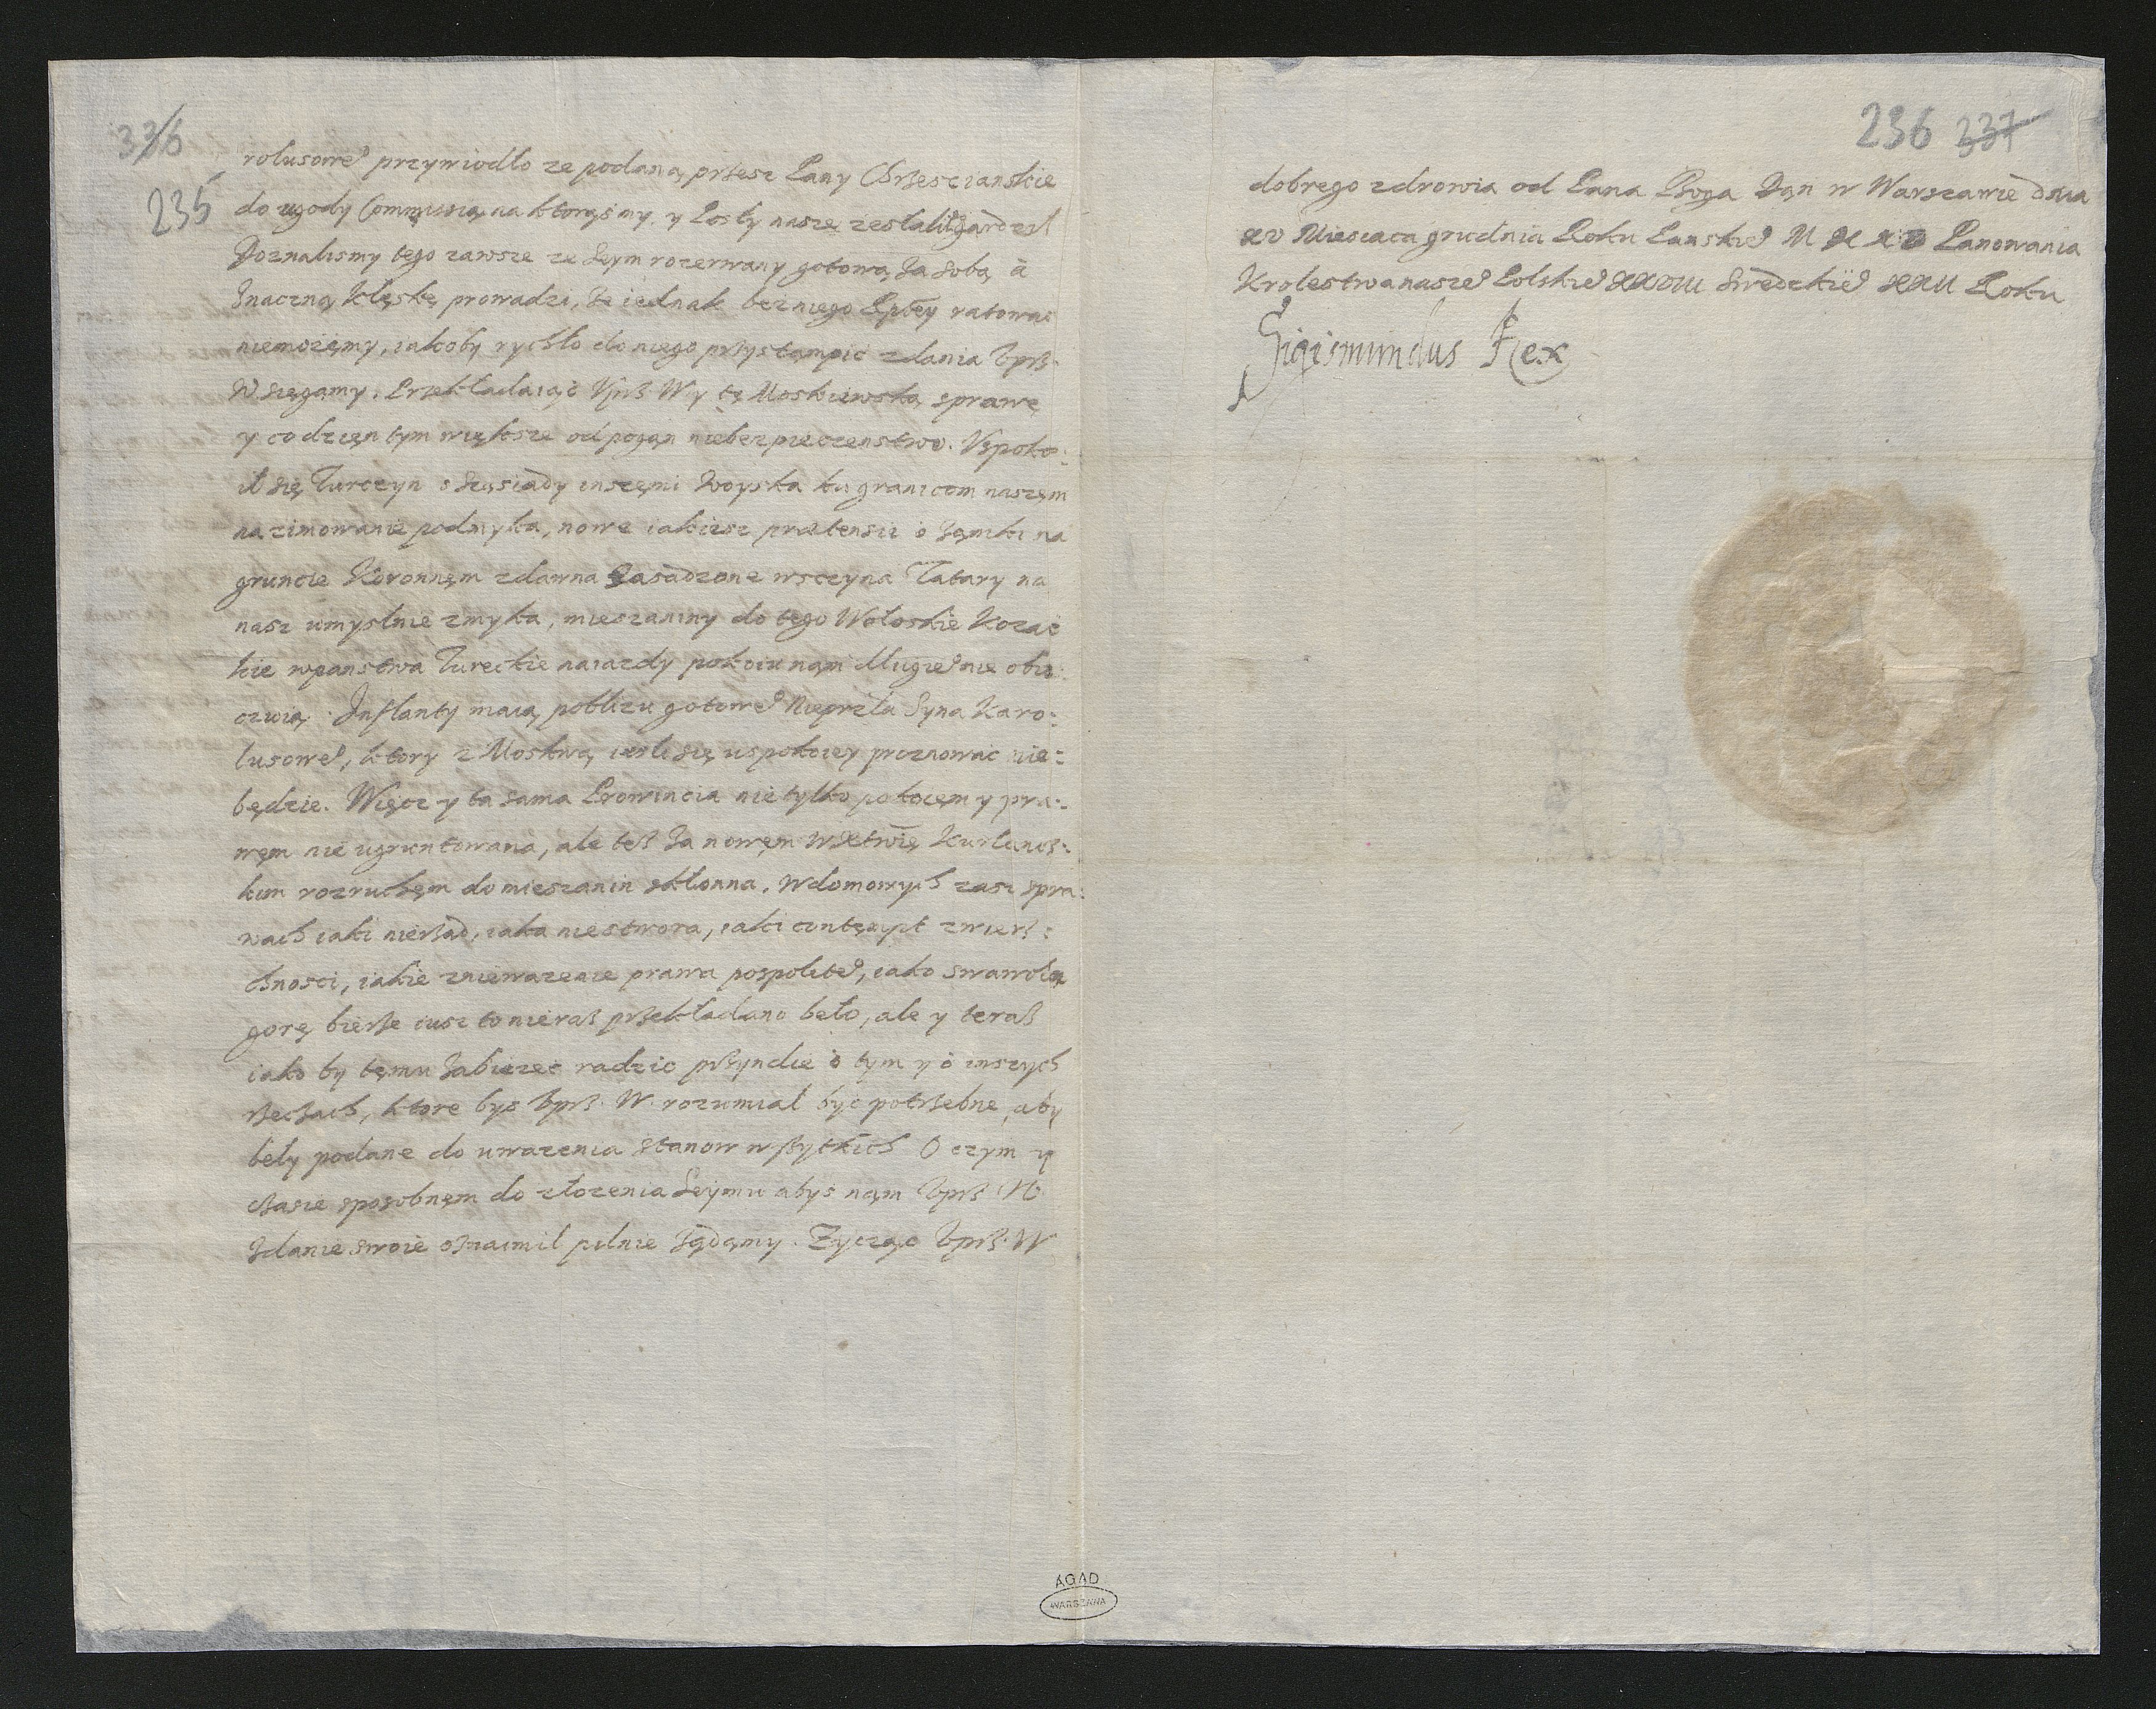 336
235
rolusoweo przywiodło ze podaną przesz Pany Chrzescianskie
do ugody Commissią na ktorąsmy y Posły nasze zesłali
Doznalismy tego zawsze ze Seym rozerwany gotową za sobą a
znaczną klęskę prowadzi, ze iednak bez niego Rptey ratować
niemożęmy, iakoby rychło do niego przystąmpić zdania Vprz.
W sięgamy. Przekładaiąc Vprz W y tę Moskiewską sprawę
y co dzięn tym większe od pogąn niebezpieczenstwo. Vspoko:
ił się Turczyn s Sąsiady inszęmi Woyska ku granicom naszęm
na zimowanie podmyka, nowe iakiesz praetensie o Zamki na
gruncie Koronnęm zdawna zasadzone wsczyna Tatary na
nasz umyslnie zmyka, mieszaniny do tego Wołoskie Kozac
kie w panstwa Tureckie naiazdy pokoiu nąm dlugieo nie obie:
czuią. Inflanty maią poblizu gotoweo Nieprzla Syna Karo:
lusoweo, ktory z Moskwą iesli się uspokoiey prożnować nie:
będzie. Więcz y ta sama Prowincia nie tylko pokoięm y pra:
węm nie ugruntowana, ale tesz za nowęm w Xtwię Kurlans:
kim rozruchęm do mieszanin skłonna. W domowych zasz spra:
wach iaki nierząd, iaka niesfora, iaki contęmpt zwierz:
chnosci, iakie zniewazenie prawa pospoliteo, iako swawola
gorę bierze iusz to nieraz przekładano beło, ale y teraz
iako by tęmu zabiezeć radzic przyndzie o tym y o inszych
rzeczach, ktore bys Vprz. W. rozumiał być potrzebne, aby
beły podane do uwazenia stanow wszytkich O czym y
czasie sposobnęm do złozenia Seymu abys nąm Vprz W
zdanie swoie oznaimił pilnie żądąmy. Zycząc Vprz. W
236 337
dobrego zdrowia od Pana Boga Dąn w Warszawie dnia
xv Miesiaca grudnia Roku Panskieo Panowania
Krolestw naszeo Polskieo Swedzkieo Roku
Sigismundus Rex
AGAD
WARSZAWA